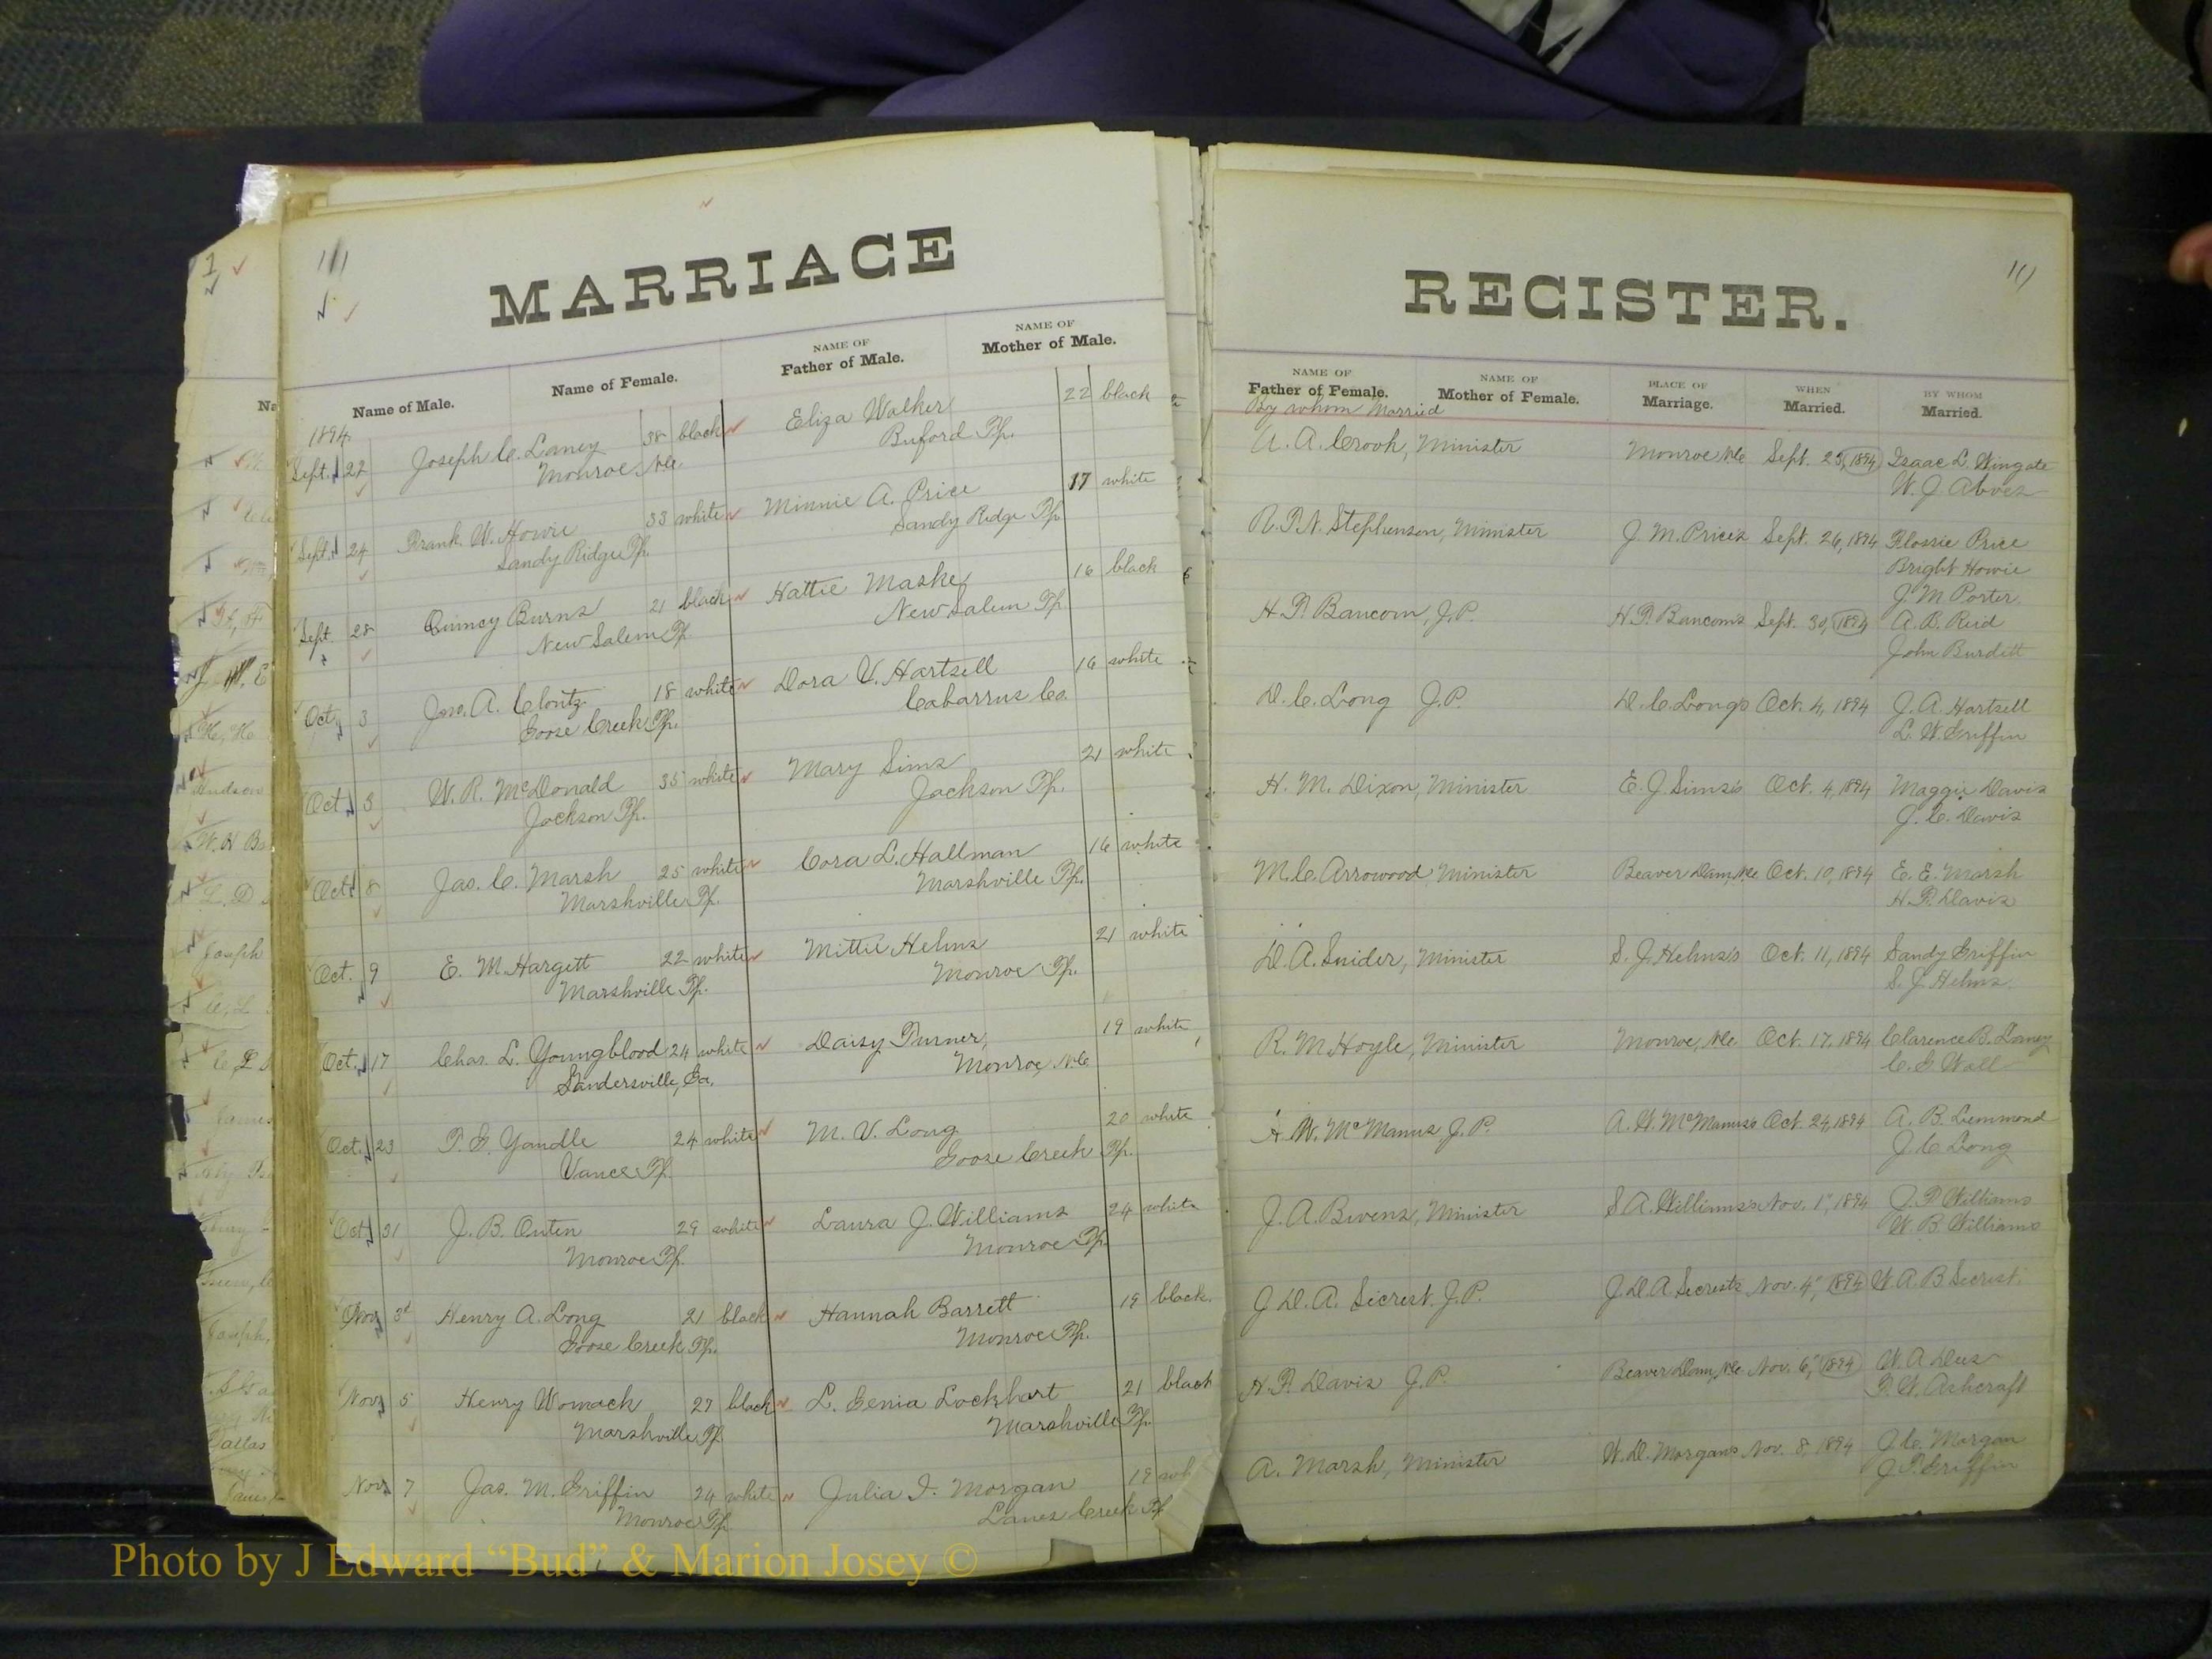 111
MARRIAGE
NAME OF
Father of Male.
NAME OF
Mother of Male.
Name of Male.
Name of Female.
1894
Sept. 22 Joseph C. Laney 38 black Eliza Walker 22 black
Monroe, N.C. Buford Tp.
Sept. 24 Frank W. Howie 33 white Minnie A. Price 17 white
Sandy Ridge Tp. Sandy Ridge Tp.
Sept. 28 Quincy Burns 21 black Hattie Maske 16 black
New Salem Tp. New Salem Tp.
Oct. 3 Jno. A. Clontz 18 white Dora V. Hartsell 16 white
Goose Creek Tp. Cabarrus Co.
Oct. 3 W. R. McDonald 35 white Mary Sims 21 white
Jackson Tp. Jackson Tp.
Oct. 8 Jas. C. Marsh 25 white Cora L. Hallman 16 white
Marshville Tp. Marshville Tp.
Oct. 9 E. M. Hargett 22 white Mittie Helms 21 white
Marshville Tp. Monroe Tp.
Oct. 17 Chas. L. Youngblood 24 white Daisy Turner, 19 white
Sandersville, Ga. Monroe, N.C.
Oct. 23 T. G. Yandle 24 white M. V. Long 20 white
Vance Tp. Goose Creek Tp.
Oct. 31 J. B. Outen 29 white Laura J. Williams 24 white
Monroe Tp. Monroe Tp.
Nov. 3d Henry A. Long 21 black Hannah Barrett 19 black.
Goose Creek Tp. Monroe Tp.
Nov. 5 Henry Womack 27 black L. Genia Lockhart 21 black
Marshville Tp. Marshville Tp.
Nov. 7 Jas. M. Griffin 24 white Julia I. Morgan 19 wh
Monroe Tp. Lanes Creek Tp.
111
REGISTER.
NAME OF
Father of Female.
NAME OF
Mother of Female.
PLACE OF
Marriage.
WHEN
Married.
BY WHOM
Married.
By whom Married
A. A. Crook, Minister Monroe N.C. Sept. 23, 1894 Isaac L. Wingate
R. P. N. Stephenson, Minister J. M. Price's Sept. 26, 1894 Flossie Price
Bright Howie
J. M. Porter
H. F. Baucom, J.P. H. F. Baucom's Sept. 30, 1894 A. B. Reid
John Burdett
D. C. Long J.P. D. C. Long's Oct. 4, 1894 J. A. Hartsell
L. W. Griffin
H. M. Dixon, Minister E. J. Sims's Oct. 4, 1894 Maggie Davis
J. C. Davis
M. C. Arrowood, Minister Beaver Dam, N.C. Oct. 10, 1894 E. E. Marsh
H. F. Davis
D. A. Snider, Minister S. J. Helms's Oct. 11, 1894 Sandy Griffin
S. J. Helms
R. M. Hoyle, Minister Monroe, N.C. Oct. 17, 1894 Clarence B.
C. G. Wall
A. W. McManus J.P. A. W. McManus's Oct. 24, 1894 A. B. Lemmond
J. C. Long
J. A. Bivens, Minister S. A. Williams's Nov. 1", 1894 J. T. Williams
W. B. Williams
J. D. A. Secrest. J.P. J. D. A. Secrests Nov. 4", 1894 W. A. B. Secrest.
H. F. Davis J.P. Beaver Dam, N.C. Nov. 6", 1894 W. A. Dees
F. W. Ashcraft
A. Marsh, Minister W. D. Morgans Nov. 8, 1894 J. C. Morgan
J. T. Griffin
Photo by J Edward "Bud" & Marion Josey ©